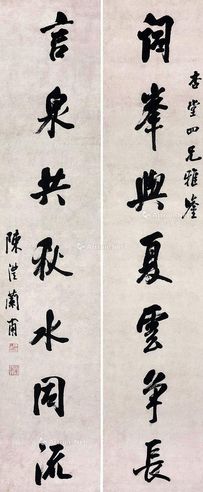 杏堂四兄雅鑒
詞峯與夏雲爭長
言泉共秋水同流
陳澧蘭甫